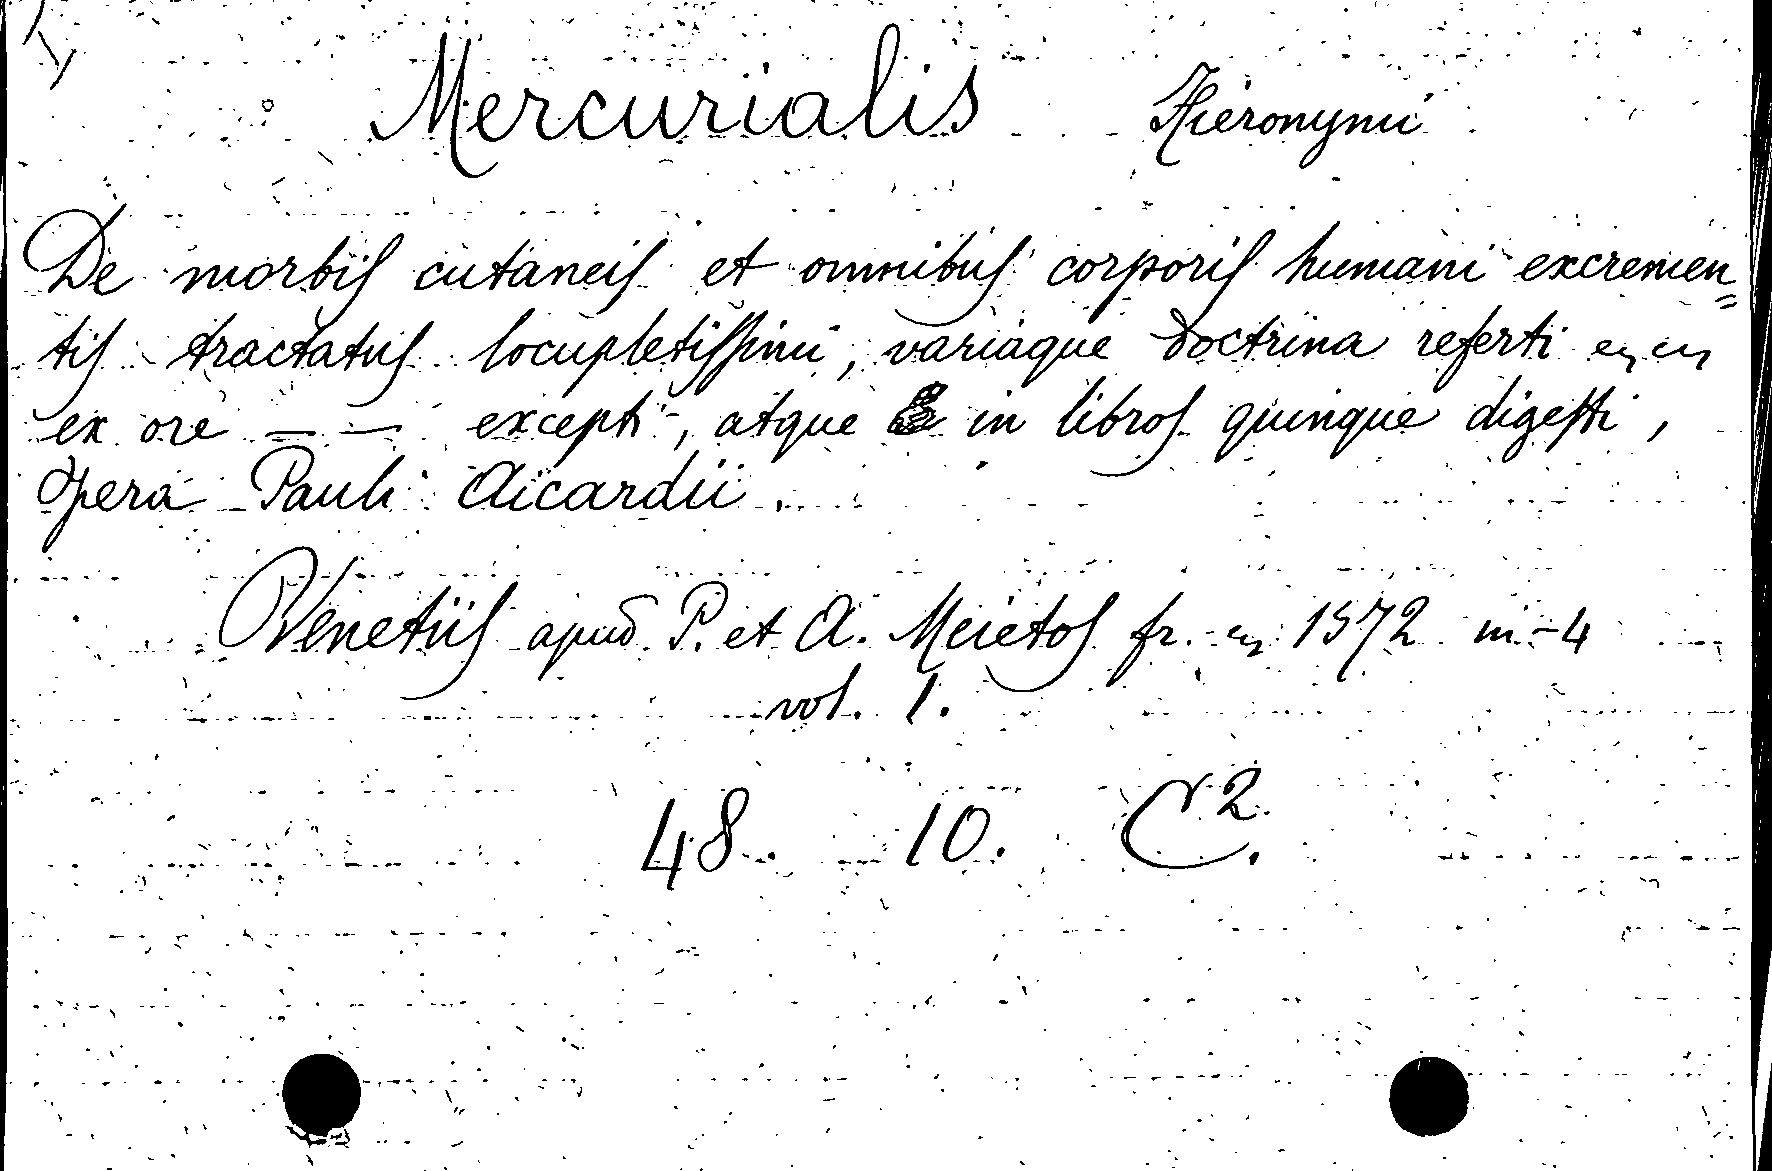 Mercurialis Hieronymi
De morbis cutaneis et omnibus corporis humani excremen=
tis tractatus locupletissimi, variaque doctrina referti
ex ore — — excepti, atque in libros quinque digesti,
opera Pauli Aicardii.
Venetiis apud P. et A. Meietos fr. 1572 in-4
vol. 1.
48. 10. C 2.